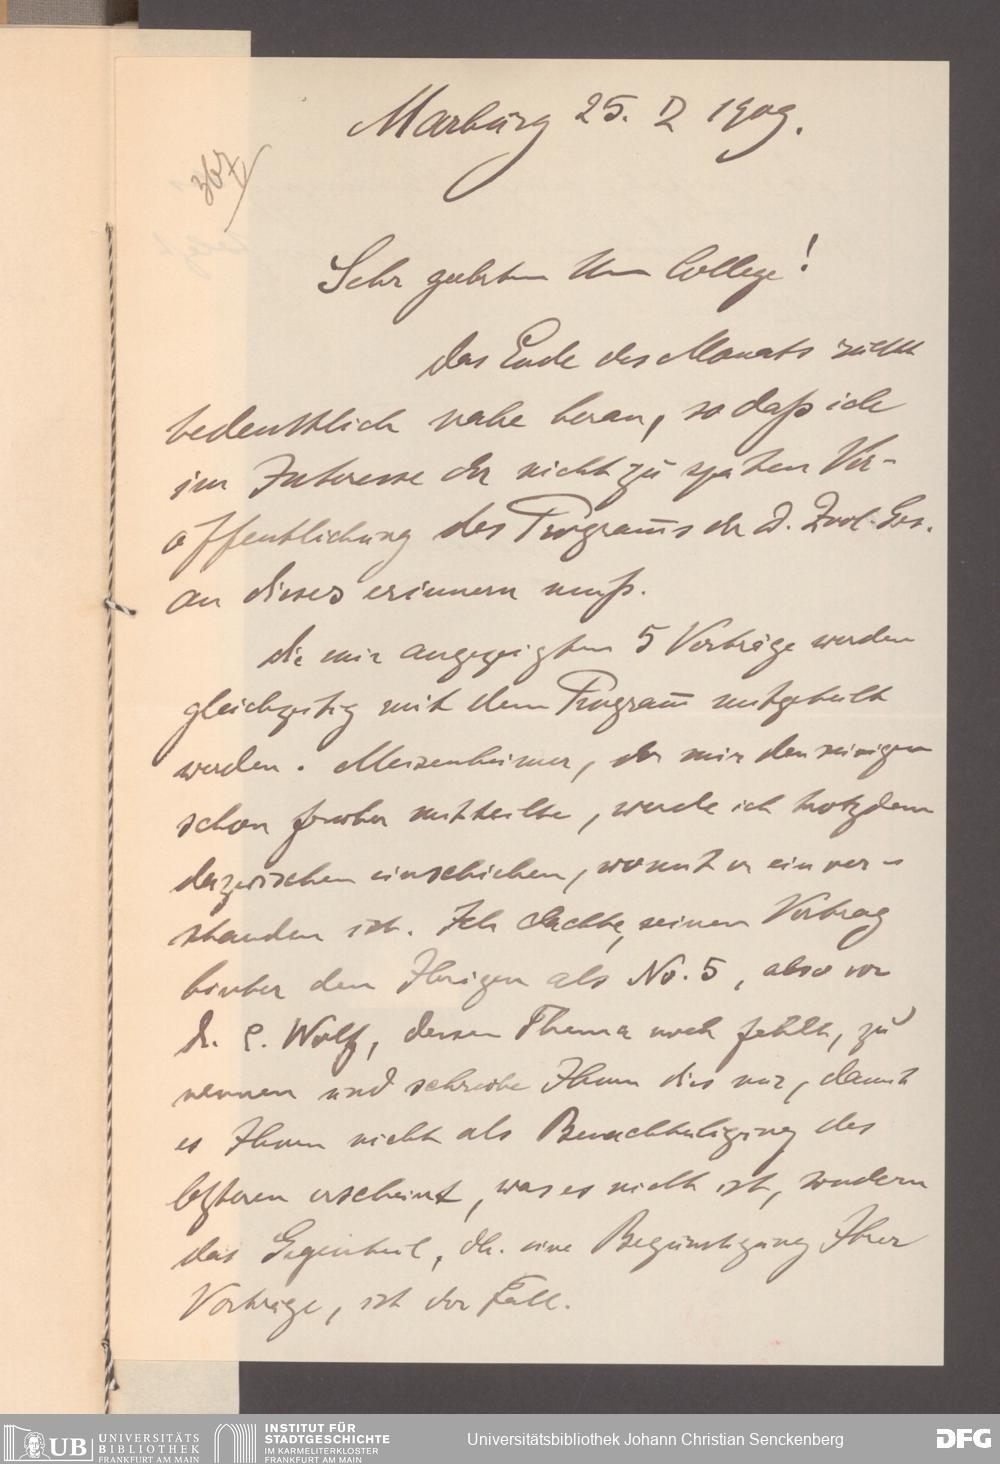 Marburg 25. II 1909.
367
Sehr geehrter Herr College!
Das Ende des Monats rückt
bedenklich nahe heran, so daß ich
im Interesse der nicht zu späten Ver-
öffentlichung des Program̅s der D. Zool. Ges.
an dieses erinnern muß.
Die mir angezeigten 5 Vorträge werden
gleichzeitig mit dem Program̅ mitgetheilt
werden. Meisenheimer, der mir den seinigen
schon früher mittheilte, werde ich trotzdem
dazwischen einschieben, womit er einver-
standen ist. Ich dachte, seinen Vortrag
hinter den Ihrigen als No. 5, also vor
Dr. E. Wolf, dessen Thema noch fehlt, zu
nennen und schreibe Ihnen dies nur, damit
es Ihnen nicht als Benachtheiligung des
letzteren erscheint, was es nicht ist, sondern
das Gegentheil, dh. eine Begünstigung Ihrer
Vorträge, ist der Fall.
UB UNIVERSITÄTS
BIBLIOTHEK
FRANKFURT AM MAIN
INSTITUT FÜR
STADTGESCHICHTE
IM KARMELITERKLOSTER
FRANKFURT AM MAIN
Universitätsbibliothek Johann Christian Senckenberg
DFG